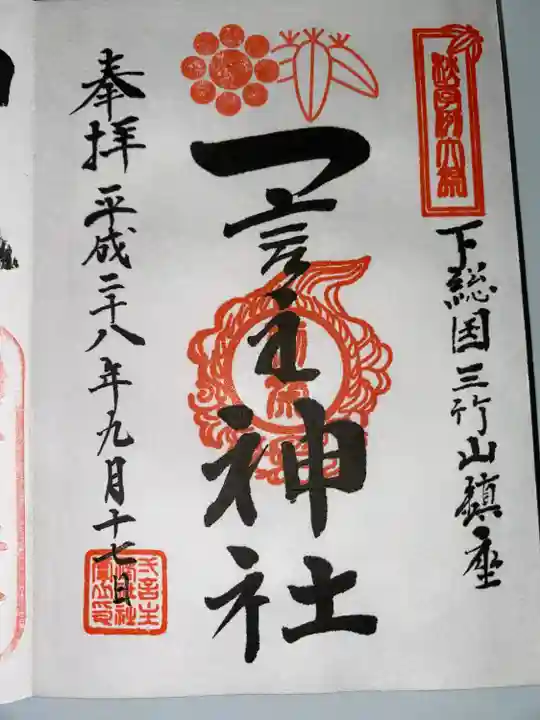 下総国三竹山鎮座
一言主神社
奉拝 平成二十八年九月十七日